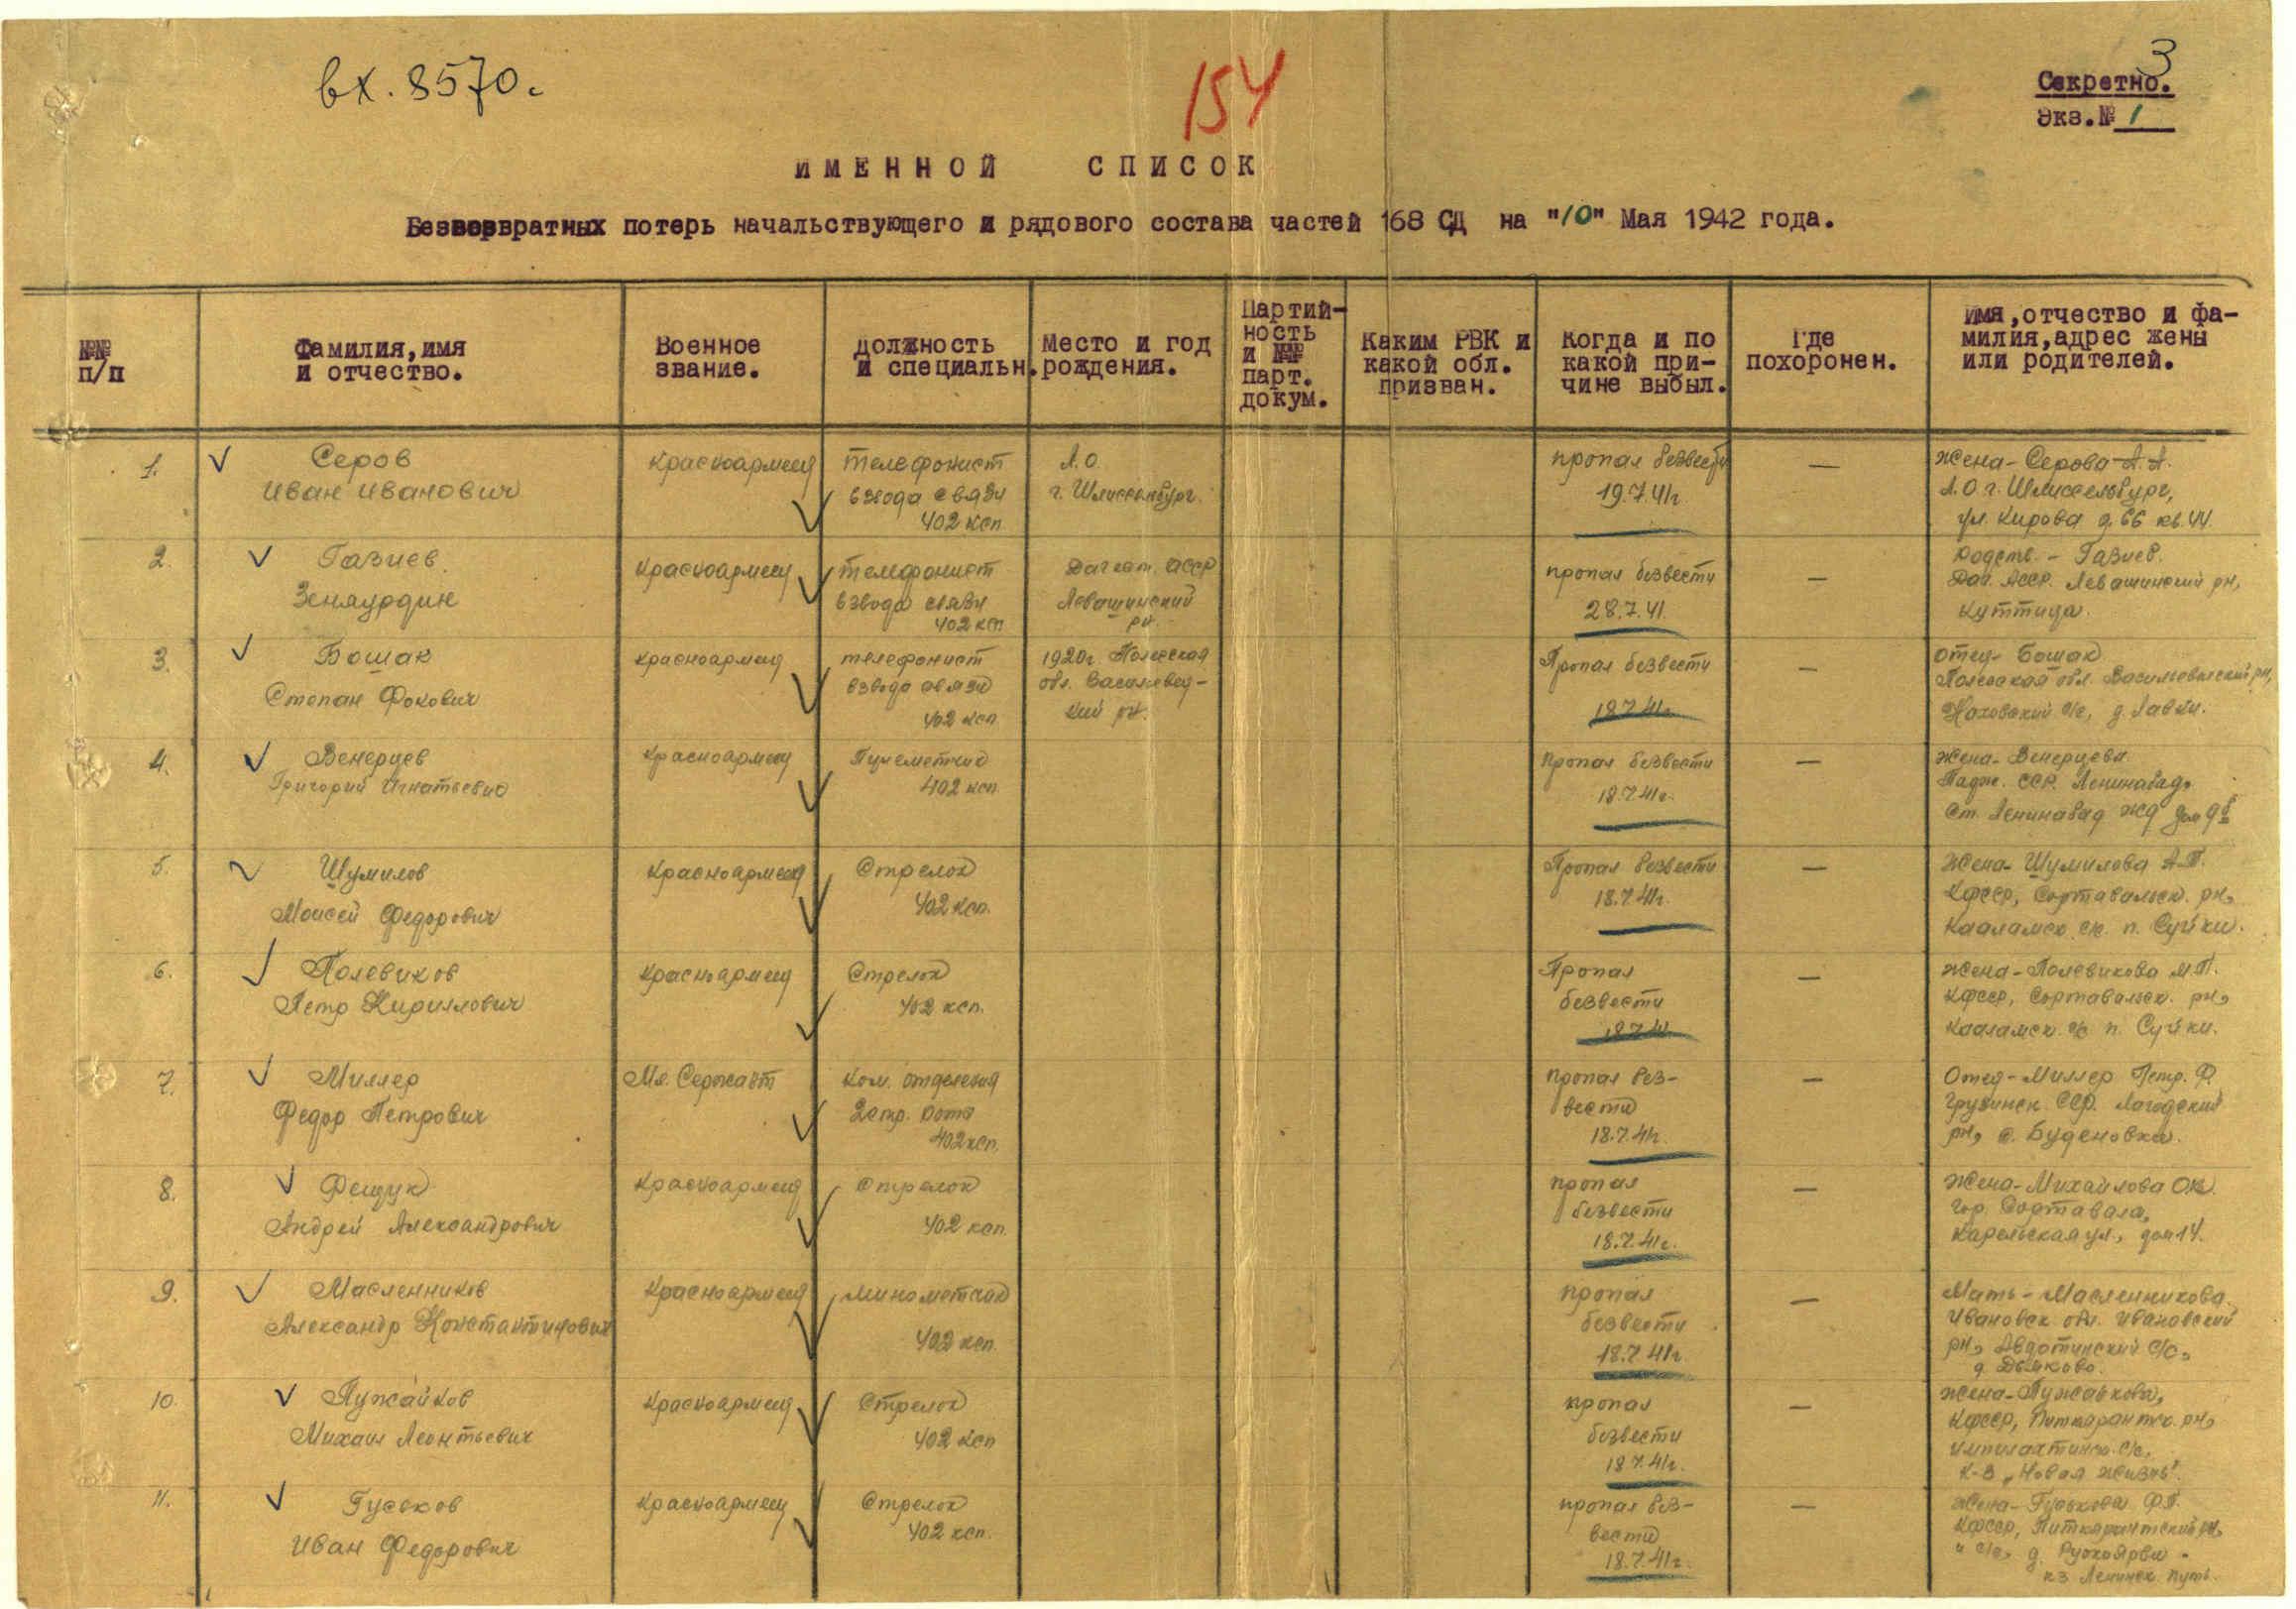 вх. 8570.
154
3
Секретно.
Экз.№ 1
ИМЕННОЙ СПИСОК
Безвозвратных потерь начальствующего и рядового состава частей 168 СД на "10" Мая 1942 года.
№№ п/п
Фамилия,имя
и отчество.
Военное
звание.
Должность
и специальн.
Место и год
рождения.
Партий-
ность
и №№
парт.
докум.
Каким РВК и
какой обл.
призван.
Когда и по
какой при-
чине выбыл.
Где
похоронен.
Имя,отчество и фа-
милия,адрес жены
или родителей.
1.
Серов
Иван Иванович
Красноармеец
телефонист
взвода связи
402 ксп
Л.О.
г. Шлиссельбург.
пропал безвести
19.7.41г.
—
Жена-Серова А.А.
Л.О. г. Шлиссельбург,
ул. Кирова д. 66 кв. 44.
2.
Газиев
Зенаурдин
Красноармеец
телефонист
взвода связи
402 ксп
Дагест. АССР
Левашинский
рн.
пропал безвести
28.7.41
—
Родств. - Газиев.
Даг. АССР. Левашинский рн,
Куттица.
3.
Бошак
Степан Фокович
Красноармеец
телефонист
взвода связи
402 ксп
1920г.
обл. Василевец-
кий рн.
Пропал безвести
18.7.41г.
—
отец- Бошак
обл. рн,
с/с, д.
4.
Венерцев
Григорий Игнатьевич
Красноармеец
Пулеметчик
402 ксп
Пропал безвести
18.7.41г.
—
Жена- Венерцева
Тадж. ССР. Ленинабад.
Ст. Ленинабад жд дом
5.
Шумилов
Моисей Федорович
Красноармеец
Стрелок
402 ксп.
Пропал безвести
18.7.41г.
—
Жена- Шумилова А.П.
Кфсср, Сортавальск. рн,
Кааламск. с/с п. Суйки.
6.
Полевиков
Петр Кириллович
Красноармеец
Стрелок
402 ксп.
Пропал
безвести
18.7.41
—
Жена-Полевикова М.П.
Кфсср, Сортавальск. рн,
Кааламск. с/с п. Суйки.
7.
Миллер
Федор Петрович
Мл. Сержант
Ком. отделения
2стр. рота
402ксп.
пропал без-
вести
18.7.41г.
—
Отец-Миллер Петр. Ф.
Грузинск. ССР. Лагодский
рн, с. Буденовка.
8.
Фещук
Андрей Александрович
Красноармеец
Стрелок
402 ксп.
пропал
безвести
18.7.41г.
—
Жена-Михайлова О.К.
гор. Сортавала,
Карельская ул., дом 14.
9.
Масленников
Александр Константинович
Красноармеец
минометчик
402 ксп.
пропал
безвести
18.7.41г.
—
Мать-Масленникова
Ивановск. обл. Ивановский
рн, Авдотинский с/с,
д. Дьяково.
10.
Пужайков
Михаил Леонтьевич
Красноармеец
Стрелок
402 ксп
пропал
безвести
18.7.41г.
—
Жена-Пужайкова,
Кфсср, Питкярантск. рн,
Импилахтинск. с/с,
К-з „Новая жизнь".
11.
Гуськов
Иван Федорович
Красноармеец
Стрелок
402 ксп.
пропал без-
вести
18.7.41г.
—
Жена-Гуськова Ф.П.
Кфсср, Питкярантский рн,
и с/с, д. Руокоярви
кз Ленинск. путь.